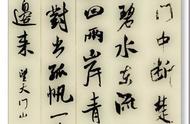 门中断楚
碧水东流
回两岸青
對出孤帆一
邊来 望天门山